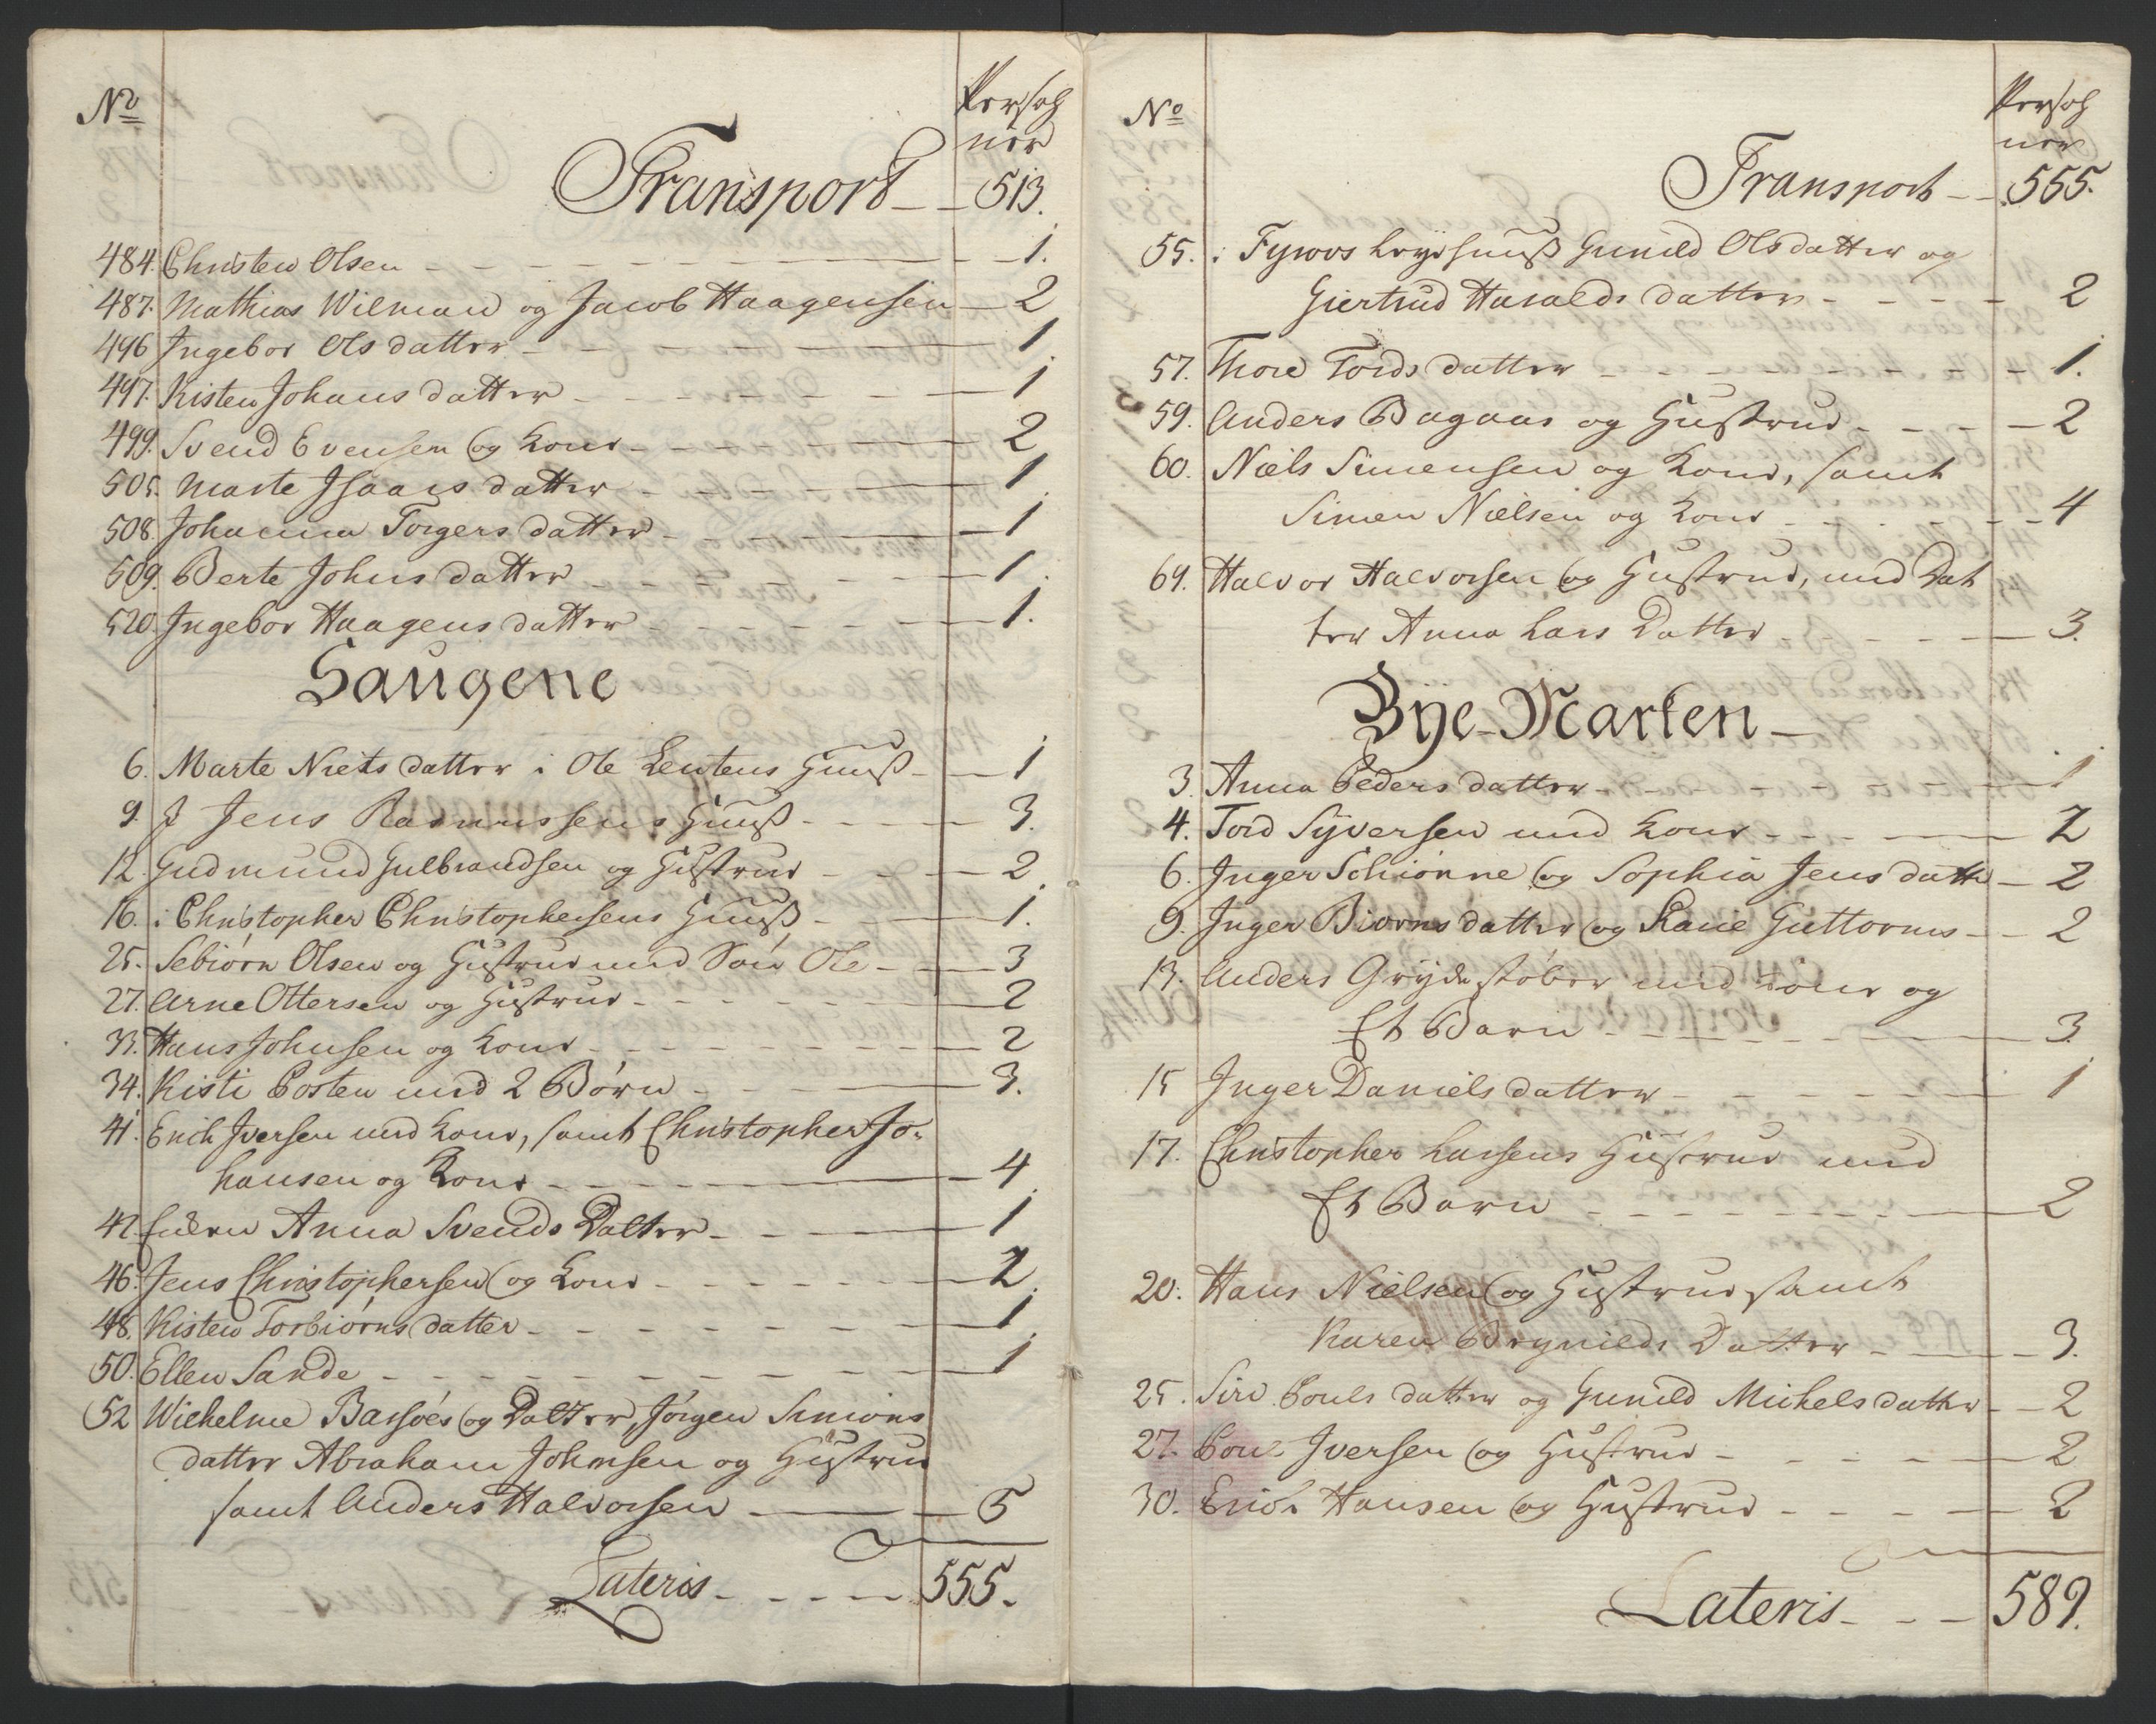 No
Persoh
ner
Transport - - 513.
484. Christen Olsen - - - 1.
487. Mathias Wilman og Jacob Haagensen - 2
496 Ingebor Olsdatter - - - 1
497. Kisten Johansdatter - - - 1
499. Svend Evensen og Kone - - - 2
505. Marte Isaacsdatter - - - 1
508. Johanna Torgersdatter - - - 1
509. Berte Johnsdatter - - - 1.
520. Ingebor Haagensdatter - - - 1.
Saugene
6. Marte Nielsdatter i Ole Lentens Huuss - 1
9. I Jens Rasmussens Huuss - - - 3.
12. Gudmund Gulbrandsen og Hustrue - - - 2
16. i Christopher Christophersens Huuss - 1.
25. Sebiørn Olsen og Hustrue med Søn Ole - 3
27. Arne Ottersen og Hustrue - - - 2
33. Hans Johnsen og Kone - - - 2
34. Kisti Posten med 2 Børn - - - 3.
41. Erich Iversen med Kone, samt Christopher Jo-
hansen og Kone - - - 4
42. Enken Anna Svends Datter - - - 1
46. Jens Christophersen og Kone - - - 2
48. Kisten Torbiørnsdatter - - - 1
50. Ellen Sande - - - 1
52 Wilhelme Barsøes og Datter, Jørgen Simons
datter Abraham Johnsen og Hustrue
samt Anders Halvorsen - - - 5
Lateris - - - 555.
No
Persoh
ner
Transport - - 555.
55. i Huuss Gunild Olsdatter og
Giertrud Haralds datter - - - 2
57. Thore Tordsdatter - - - 1.
59. Anders Bagaas og Hustrue - - - 2
60. Niels Simensen og Kone, samt
Simen Nielsen og Kone - - - 4
64. Halvor Halvorsen og Hustrue, med Dat
ter Anna Lars Datter - - - 3.
Bye-Marken -
3. Anna Pedersdatter - - - 1
4. Tord Syversen med Kone - - - 2
6. Inger Schiønne og Sophia Jensdatter - 2
9. Inger Biørnsdatter og Guttorms - - 2
13. Anders Grydestøber med Kone og
Et Barn - - - 3
15 Inger Danielsdatter - - - 1
17. Christopher Larsens Hustrue med
Et Barn - - - 2
20. Hans Nielsen og Hustrue samt
Karen Brynilds Datter - - - 3.
25. Siri Pouls datter og Gunild Michelsdatter - - 2
27. Poul Iversen og Hustrue - - - 2
30. Erich Hansen og Hustrue - - - 2
Lateris - - - 589.